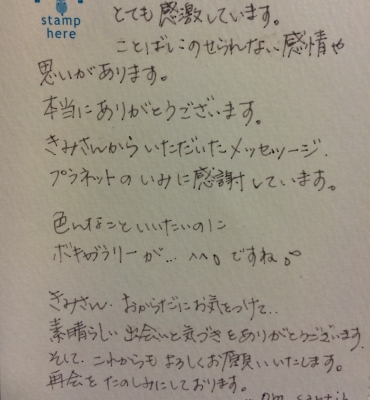 stamp
here
とても感激しています。
ことばにのせられない感情や
思いがあります。
本当にありがとうございます。
きみさんからいただいたメッセージ.
プラネットのいみに感謝しています。
色んなこといいたいのに
ボキャブラリーが... ^^。ですね。
きみさん. おからだにお気をつけて..
素晴らしい出会いと気づきをありがとうございます.
そして. これからもよろしくお願いいたします。
再会をたのしみにしております。
om santih